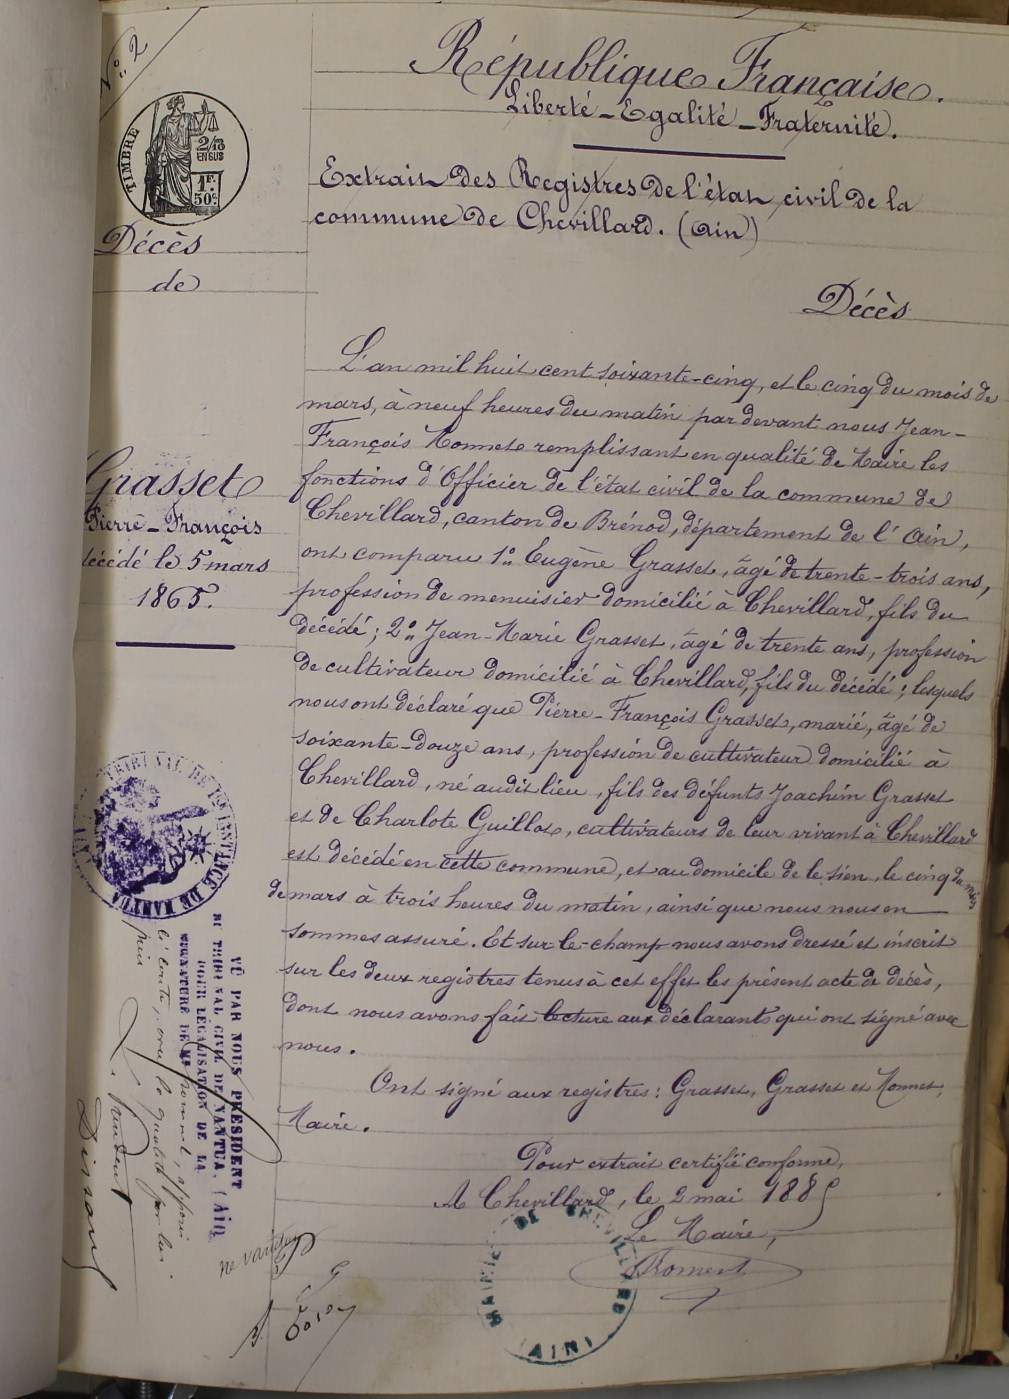 N° 2
TIMBRE
2/10
EN SUS
1F.
50c.
République Française.
Liberté - Egalité - Fraternité.
Extrait des Registres de l'état civil de la
commune de Chevillard. (Ain)
Décès
de
Grasset
Pierre-François
décédé le 5 mars
1865.
Décès
L'an mil huit cent soixante-cinq, et le cinq du mois de
mars, à neuf heures du matin par devant nous Jean-
François Monnet remplissant en qualité de Maire les
fonctions d'Officier de l'état civil de la commune de
Chevillard, canton de Brénod, département de l'Ain,
ont comparu 1° Eugène Grasset, âgé de trente-trois ans,
profession de menuisier domicilié à Chevillard, fils du
décédé ; 2° Jean-Marie Grasset, âgé de trente ans, profession
de cultivateur domicilié à Chevillard, fils du décédé ; lesquels
nous ont déclaré que Pierre-François Grasset, marié, âgé de
soixante-douze ans, profession de cultivateur domicilié à
Chevillard, né audit lieu, fils des défunts Joachim Grasset
et de Charlote Guillot, cultivateurs de leur vivant à Chevillard
est décédé en cette commune, et au domicile de le sien, le cinq du mois
de mars à trois heures du matin, ainsi que nous nous en
sommes assuré. Et sur le-champ nous avons dressé et inscrit
sur les deux registres tenus à cet effet les présent acte de décès,
dont nous avons fait lecture aux déclarants qui ont signé avec
nous.
Ont signé aux registres : Grasset, Grasset et Monnet,
Maire.
Pour extrait certifié conforme,
A Chevillard, le 2 mai 1885
Le Maire,
MAIRIE DE CHEVILLARD
(AIN)
TRIBUNAL DE 1ère INSTANCE DE NANTUA
VU PAR NOUS PRÉSIDENT
DU TRIBUNAL CIVIL DE NANTUA, (AIN)
POUR LÉGALISATION DE LA
SIGNATURE DE Mr
ne varietur